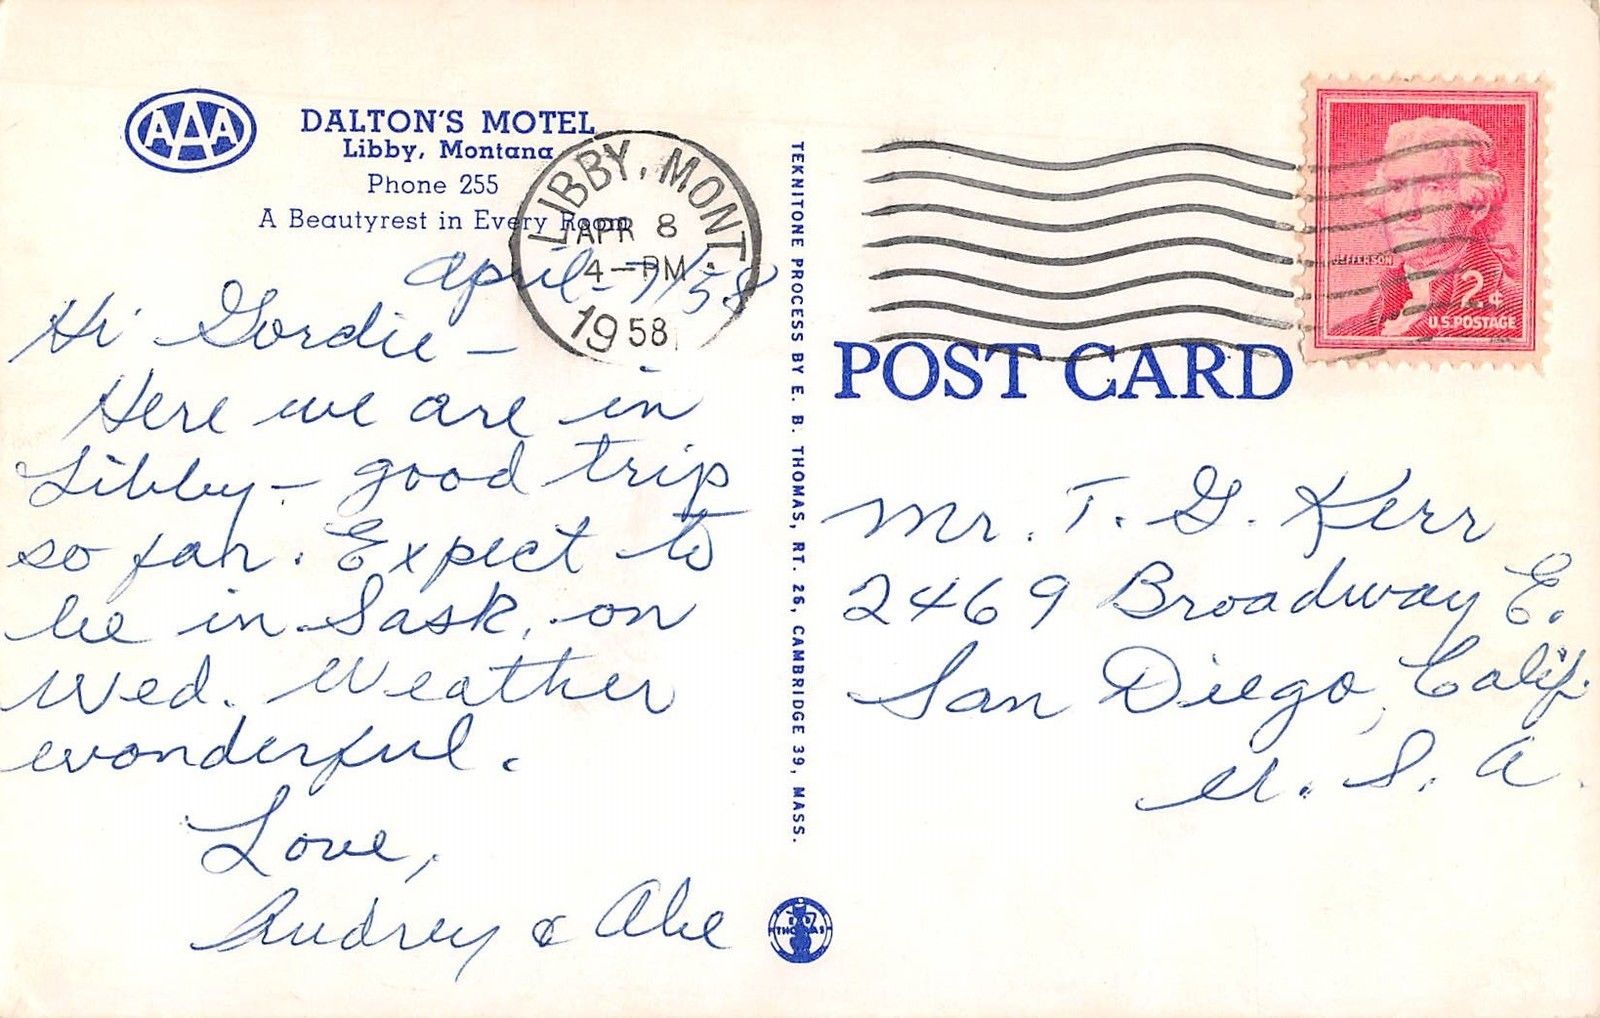 AAA
DALTON'S MOTEL
Libby, Montana
Phone 255
A Beautyrest in Every Room
LIBBY, MONT.
APR 8
4-PM
1958
April-7/58
Hi Gordie -
Here we are in
Libby - good trip
so far. Expect to
be in Sask. on
Wed. Weather
wonderful.
Love,
Audrey & Abe
TEKNITONE PROCESS BY E. B. THOMAS, RT. 26, CAMBRIDGE 39, MASS.
THOMAS
JEFFERSON
2¢
U.S. POSTAGE
POST CARD
Mr. T. G. Kerr
2469 Broadway E.
San Diego, Calif.
U. S. A.